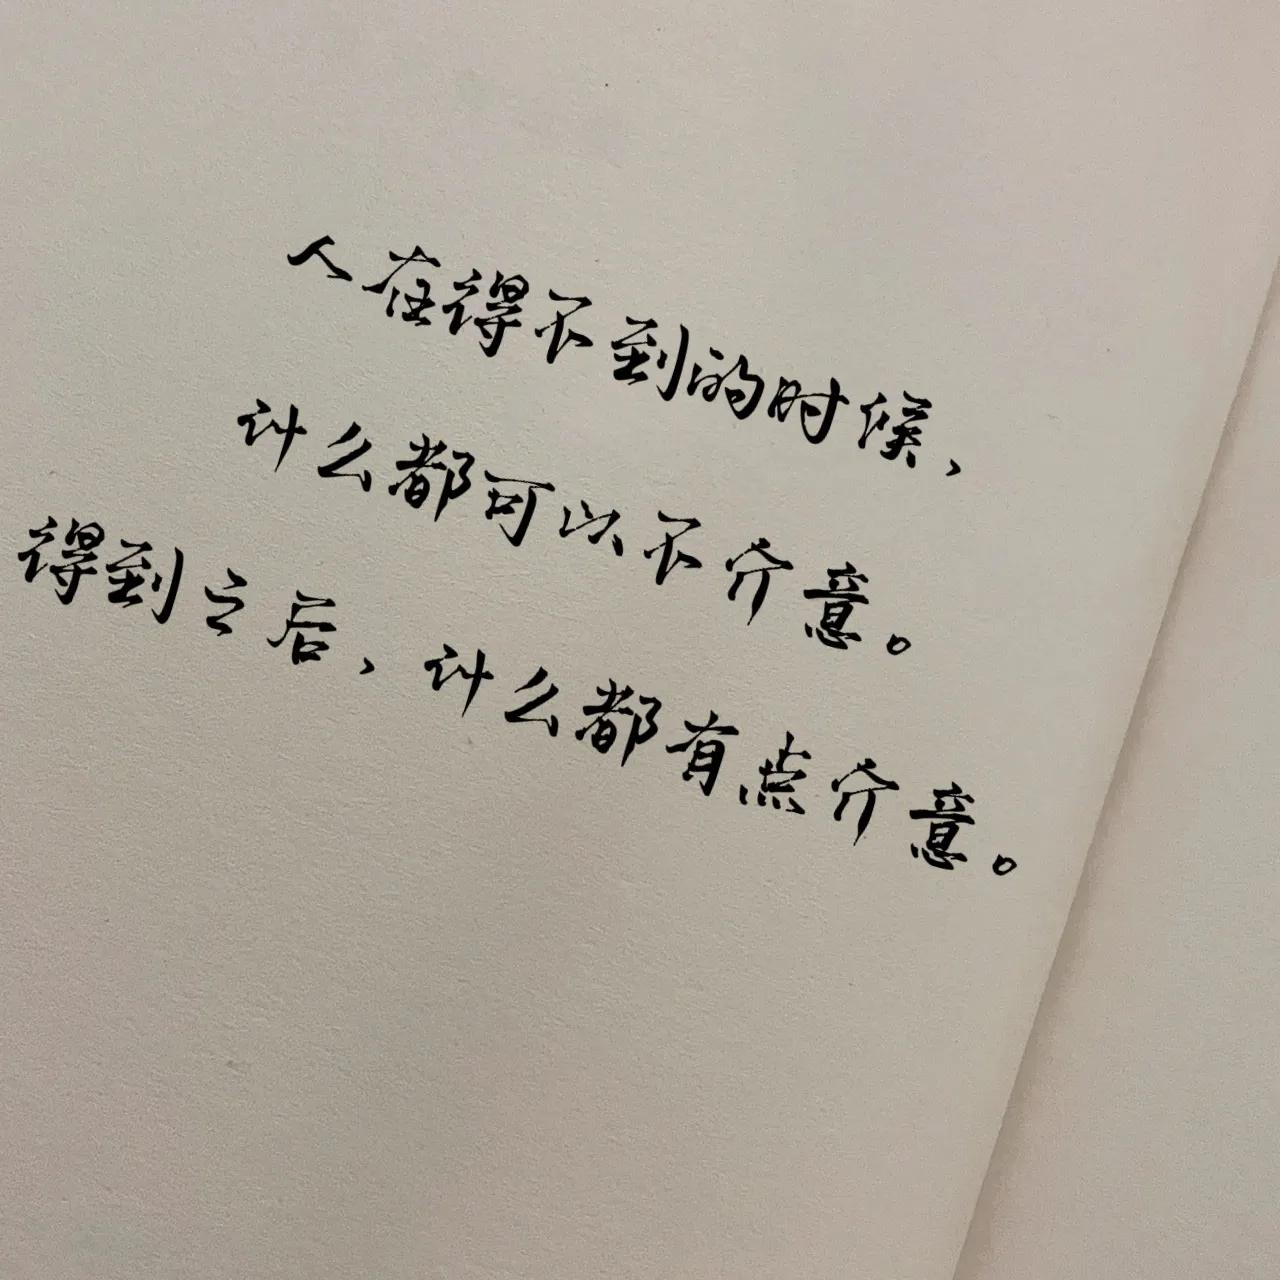 人在得不到的时候，
什么都可以不介意。
得到之后，什么都有点介意。